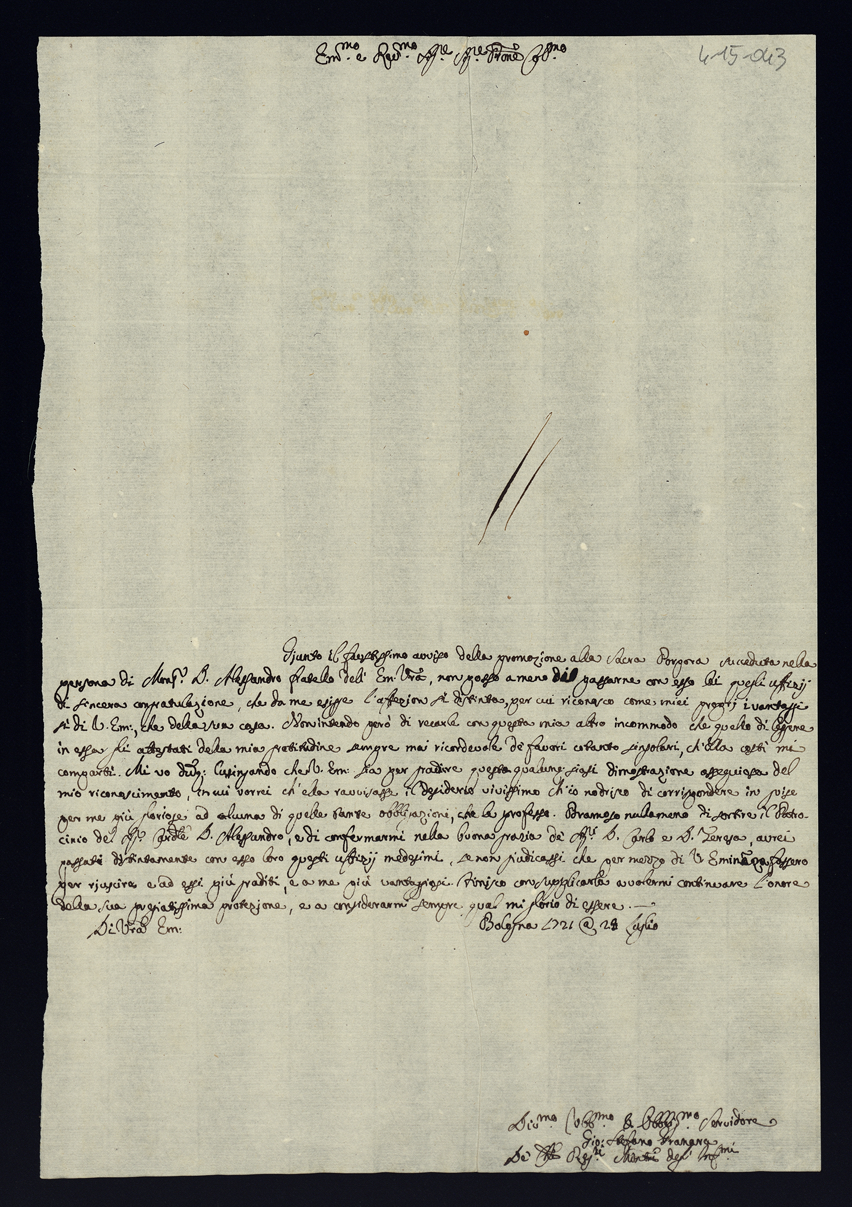 Em.mo e Rev.mo Sig.re Sig.re Prone Col.mo
4-15-043
Giunto il faustissimo avviso della promozione alla Sacra Porpora succeduta nella
persona di Mons.r D. Alessandro fratello dell' Em: Vra, non posso a meno di passarne con esso lei quegli uffizij
di sincera congratulazione, che da me esigge l'affezion sì distinta, per cui riconosco come miei proprj i vantaggi
sì di V. Em:, che della sua casa. Non intendo però di recarle con questa mia altro incommodo che quello di
in essa gli attestati della mia gratitudine sempre mai ricordevole de' favori cotanto singolari, ch'ella costì mi
compartì. Mi vo lusingando che V. Em: sia per gradire questa qualunq: siasi dimostrazione ossequiosa del
mio riconoscimento, in cui vorrei ch'ella ravvisasse il desiderio vivissimo ch'io nodrisco di corrispondere in guise
per me più gloriose ad alcuna di quelle tante obbligazioni, che le professo. Bramoso nullameno di sortire il Patro-
cinio del Sig.r Cardle D. Alessandro, e di confermarmi nella buona grazia de' Sig.ri D. Carlo e D. Teresa, avrei
passati distintamente con esso loro questi uffizij medesimi, se non giudicassi che per mezzo di V. Eminenza fossero
per riuscire e ad essi più graditi, e a me più vantaggiosi. Finisco con supplicarla a volermi continuare l'onore
della sua pregiatissima protezione, e a considerarmi sempre qual mi glorio di essere
Di Vra Em:
Bologna 1721 @ 28 Luglio
Div.mo Obb.mo Servidore
Gio: Stefano
De'